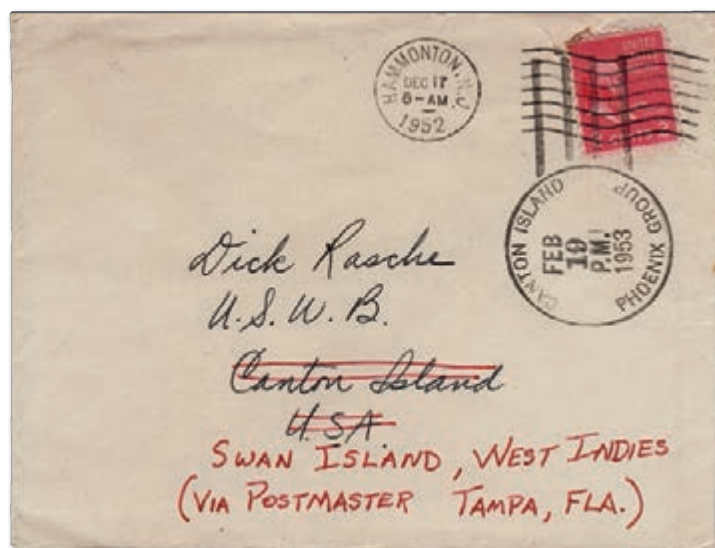 HAMMONTON, N.J.
DEC 17
6-AM
1952
CANTON ISLAND
FEB
19
P.M.
1953
PHOENIX GROUP
Dick Rasche
U.S.W.B.
Canton Island
USA
SWAN ISLAND, WEST INDIES
(VIA POSTMASTER TAMPA, FLA.)